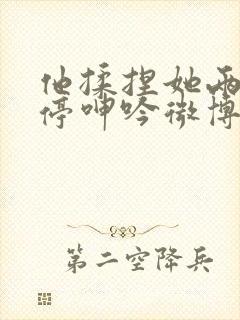 他揉捏她两
停呻吟微博
第二空降兵